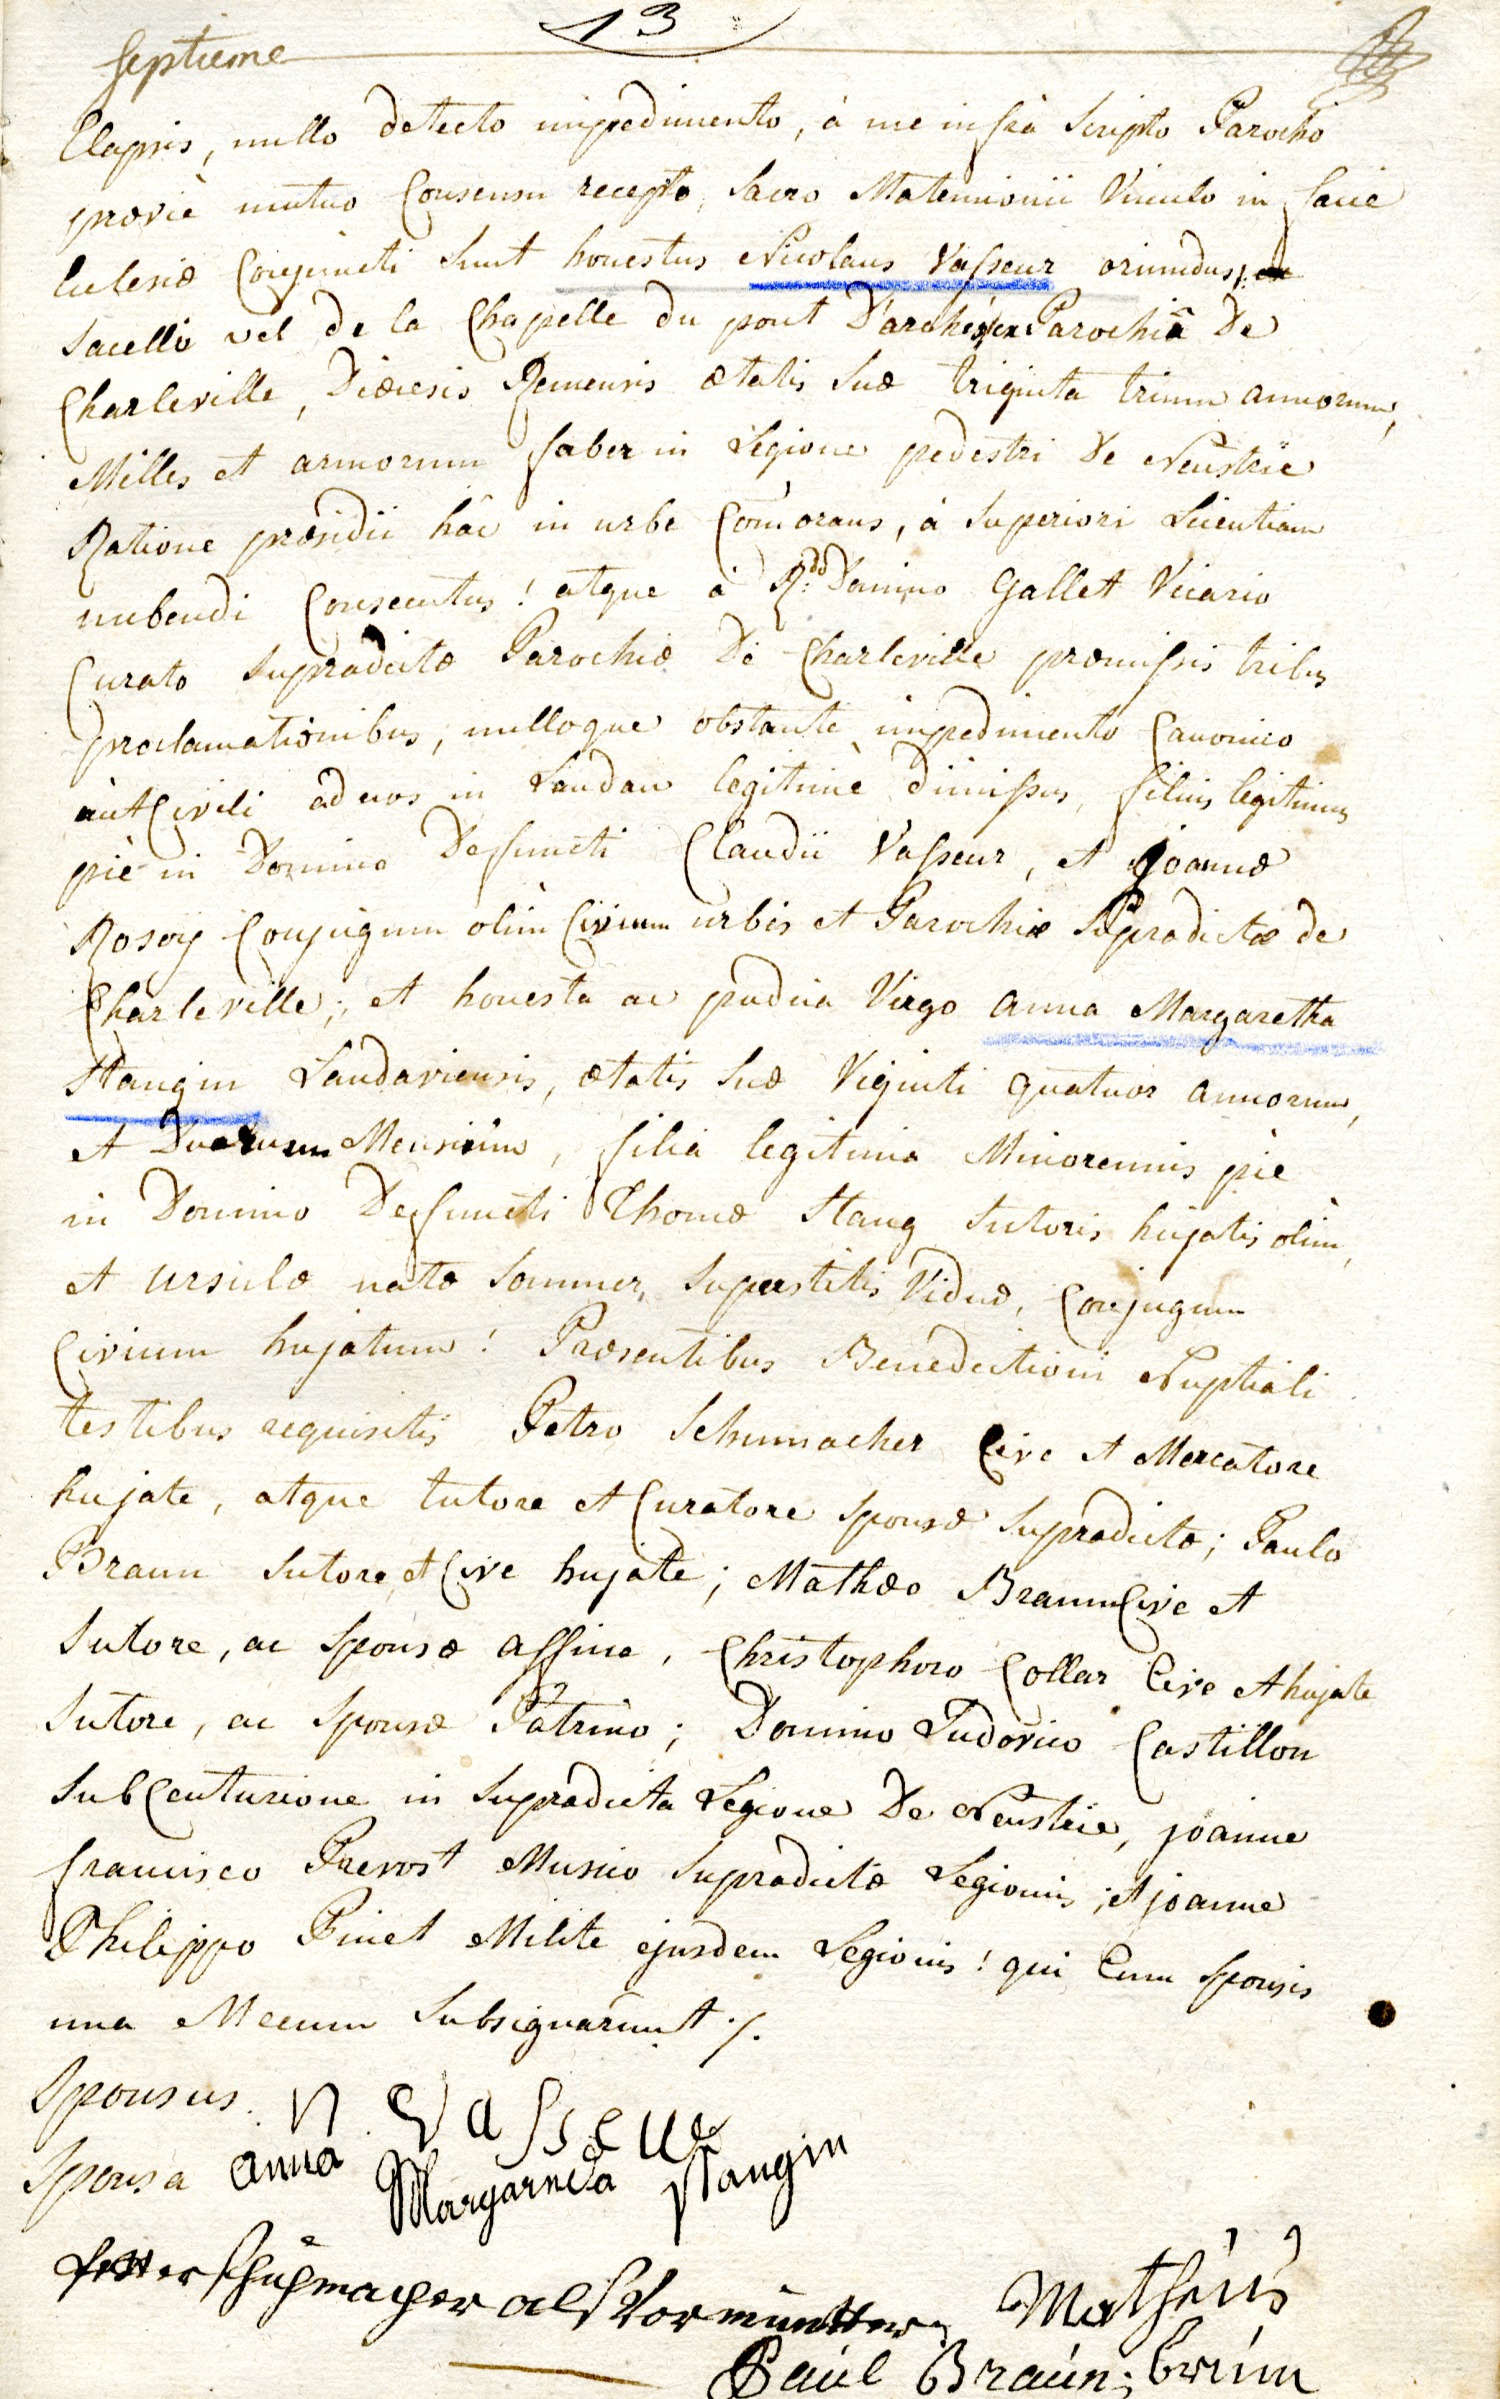 13
septieme
Elapsis, nullo detecto impedimento, à me infrà Scripto Parocho
praeviè mutuo Consensu recepto, Sacro Matrimonii Vinculo in facie
Eclesiae Conjuncti Sunt honestus Nicolaus Vasseur oriundus,
Sacelli vel de la Chapelle du pont D'arches, ex Parochiâ De
Charleville, Diœcesis Remensis ætatis Suæ triginta trium annorum,
Milles et armorum faber in Legione pedestri De Neustrie
Ratione præsidii hâc in urbe Comorans, à Superiori Licentiam
nubendi Consecutus! atque à R:do Domino Gallet Vicario
Curato Supradictæ Parochiæ De Charleville præmissis tribus
proclamationibus, nulloque obstante impedimento Canonico
aut Civili ad nos in Landau legitimè dimissus, filius legitimus
piè in Domino Deffuncti Claudii Vasseur, et Joannæ
Rosoy Conjugum olim Civium urbis et Parochiæ Supradictæ de
Charleville; et honesta ac pudica Virgo anna Margaretha
Stangin Landaviensis, ætatis Suæ Viginti quatuor annorum,
et Duorum Mensium, filia legitima Minorennis piè
in Domino Deffuncti Thomæ Stang Sutoris hujatis olim,
et Ursulæ natæ Sommer, Superstitis Viduæ, Conjugum
Civium hujatum! Præsentibus Benedictioni Nuptiali
testibus requisitis Petro Schumacher Cive et Mercatore
hujate, atque tutore et Curatore Sponsæ Supradictæ; Paulo
Braun Sutore et Cive hujate; Mathæo Braun Cive et
Sutore, ac Sponsæ affine, Christophoro Collar Cive et hujate
Sutore, ac Sponsæ Patrino; Domino Ludovico Castillon
SubCenturione in Supradicta Legione De Neustrie, joanne
francisco Prevost Musico Supradictæ Legionis; et joanne
Philippo Pinet Milite ejusdem Legionis! qui Cum Sponsis
una Mecum Subsignarunt ./.
Sponsus. n. vasseur
Sponsa anna Margareda Stangin
petter Schuhmacher als Vormuntter
Matheus
Paul Braun; brun